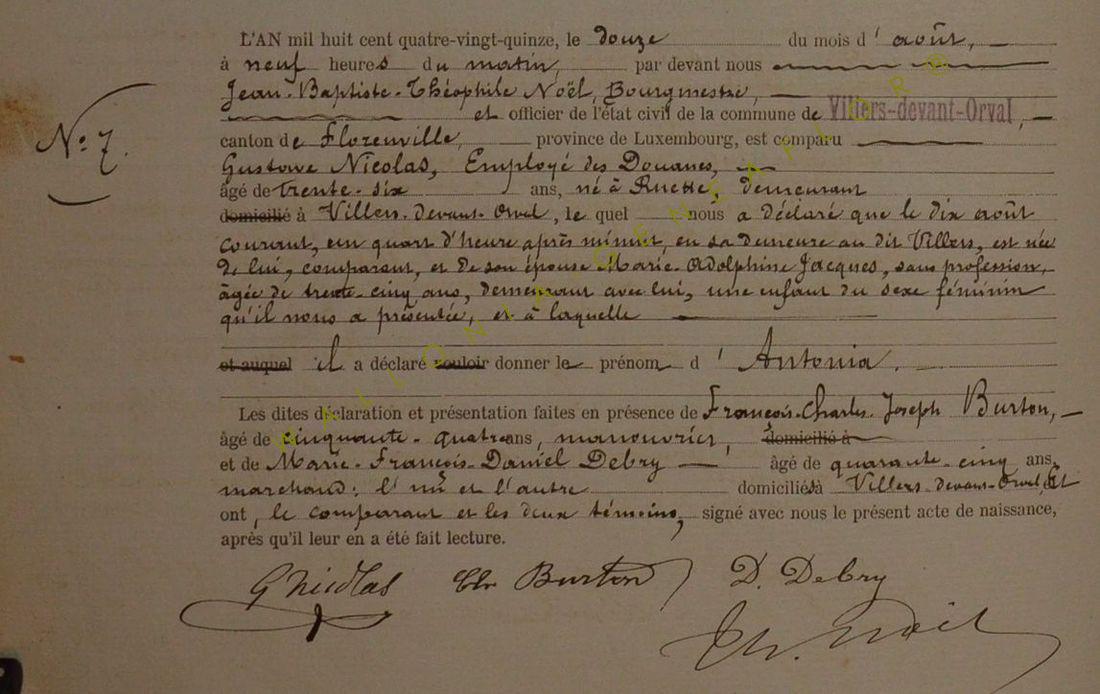 L'AN mil huit cent quatre-vingt-quinze, le douze du mois d' août,
à neuf heures du matin, par devant nous
Jean-Baptiste-Théophile Noël, Bourgmestre,
et officier de l'état civil de la commune de Villers-devant-Orval,
N° 7.
canton de Florenville, province de Luxembourg, est comparu
Gustave Nicolas, Employé des Douanes,
âgé de trente-six ans, né à Ruette, demeurant
domicilié à Villers-devant-Orval, le quel nous a déclaré que le dix août
courant, un quart d'heure après minuit, en sa demeure au dit Villers, est née
de lui, comparant, et de son épouse Marie-Adolphine Jacques, sans profession,
âgée de trente-cinq ans, demeurant avec lui, une enfant du sexe féminin
qu'il nous a présentée, et à laquelle
et auquel il a déclaré vouloir donner le prénom d' Antonia.
Les dites déclaration et présentation faites en présence de François-Charles-Joseph Burton,
âgé de cinquante-quatre ans, manouvrier, domicilié à
et de Marie-François-Daniel Debry âgé de quarante-cinq ans,
marchand; l'un et l'autre domiciliés à Villers-devant-Orval, Et
ont, le comparant et les deux témoins, signé avec nous le présent acte de naissance,
après qu'il leur en a été fait lecture.
G Nicolas Ch Burton D. Debry
Th. Noël